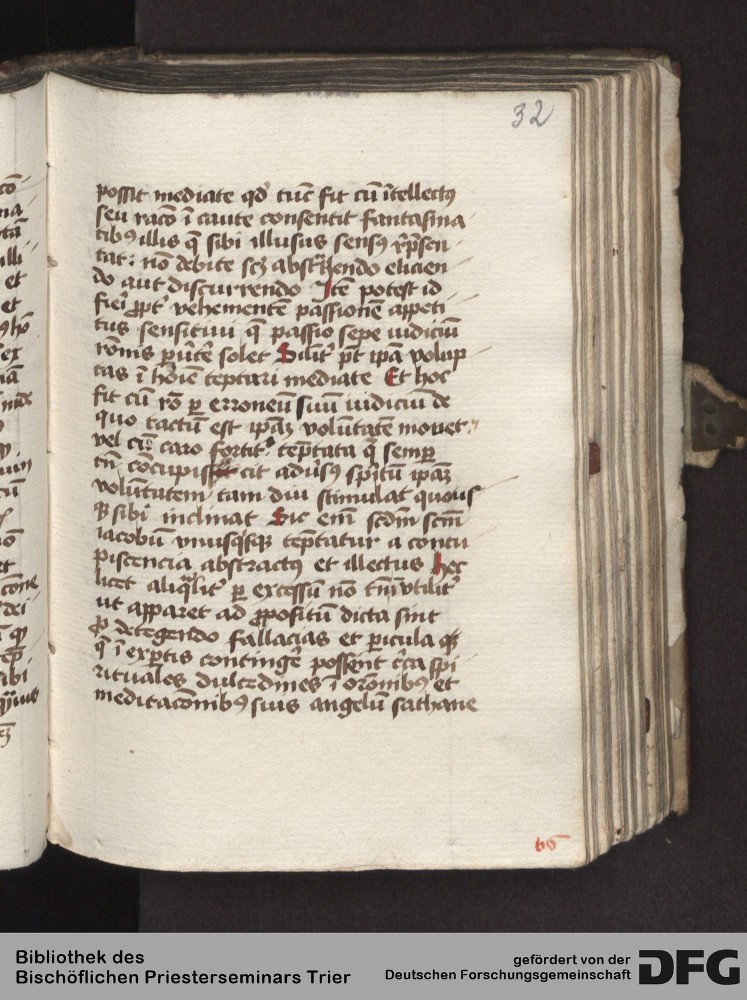 32
possit mediate qd' tūc fit cū ītellectꝯ
seu racō ī caute consentit fantasma
tibꝯ illis q̄ sibi illusus sensꝯ rp̄sen
tat: nō debite scꝫ abstrahendo elicien
do aut discurrendo Itē potest id
fieri ꝓpt' vehementē passionē appeti
tus sensitiui q̄ passio sepe iudiciū
rōnis pu
solet Silit' pt̄ ipā volup
tas ī hōiē teptari mediate Et hoc
fit cū rō ꝑ erroneū suū iudiciū de
quo tactū est ipāꝫ volūtatē mouet
vel cū caro fortit' tēptata q̄ semꝑ
cōcupiscit adūsꝯ spitū ipāꝫ
volūtatem tam diu stimulat quous
qꝫ sibi inclinat Sic em̄ scdm̄ scm̄
iacobū vnusqisqꝫ tēptatur a concu
piscencia abstractꝯ et illectus hec
licet aliqualit' ꝑ excessū nō tn̄ īvtilit'
ut apparet ad ꝓpositū dicta sint
ꝓ detegendo fallacias et ꝑicula qꝫ
q̄ ī exꝑtis contingē possent c̄ca spi
rituales dulcedines ī orōnibꝯ et
meditacōnibꝯ suis angelū sathane
66
Bibliothek des
Bischöflichen Priesterseminars Trier
gefördert von der
Deutschen Forschungsgemeinschaft
DFG